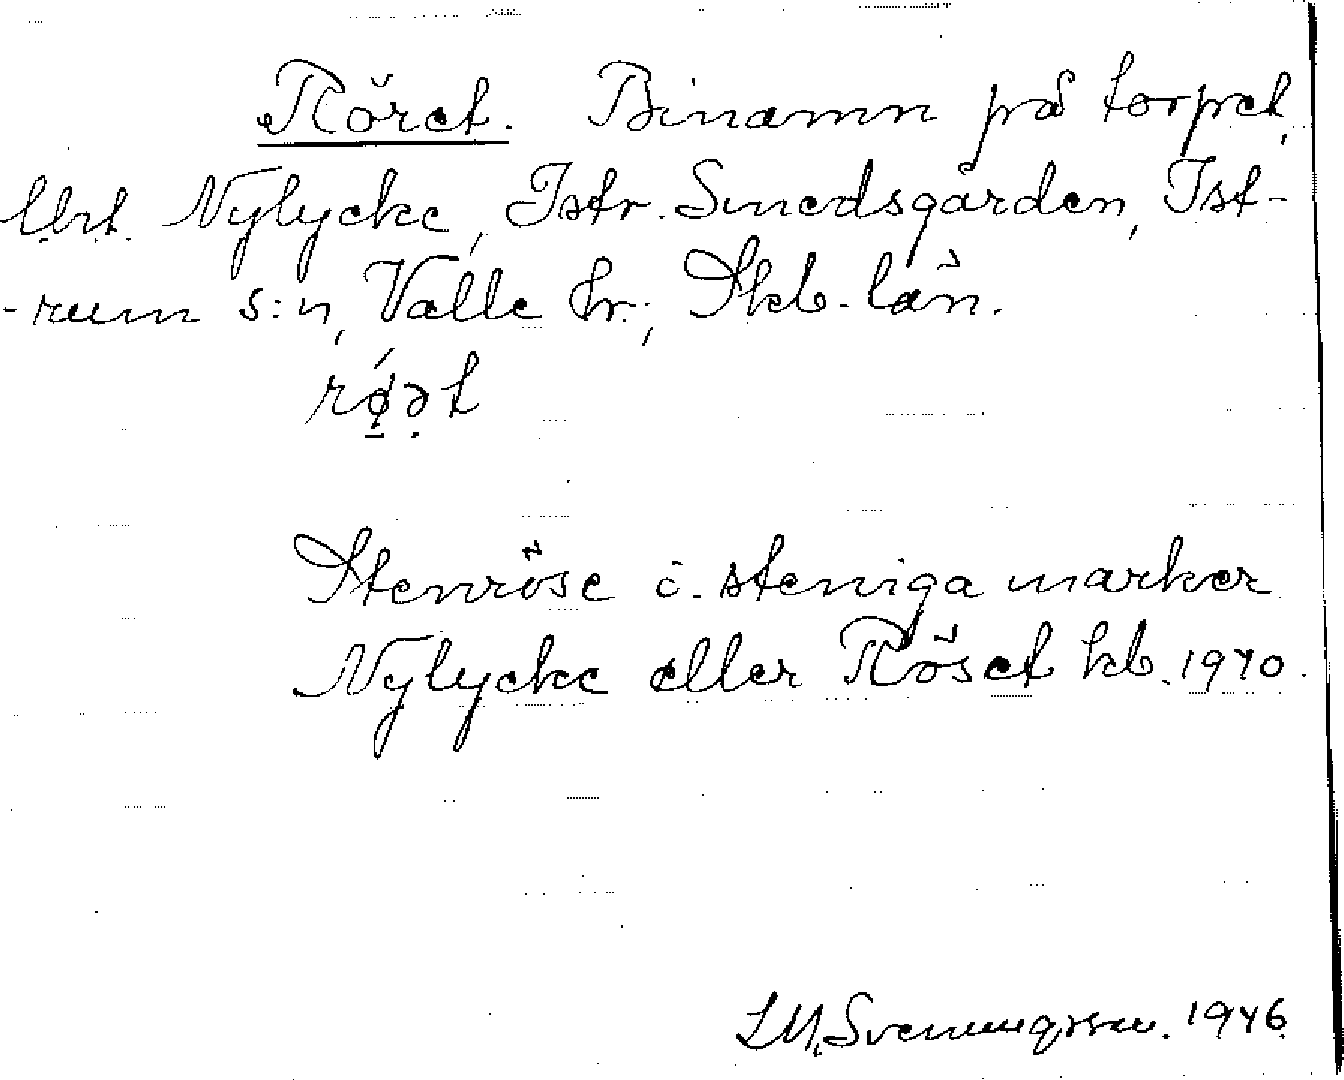 Röret. Binamn på torpet,
lht. Nylycke, Istr. Smedsgården, Ist-
-rum s:n, Valle hr., Skb-län.
rǿ̣ət
Stenröse i steniga marker
Nylycke eller Röset kb. 1940.
L.M. Svenungsson. 1946